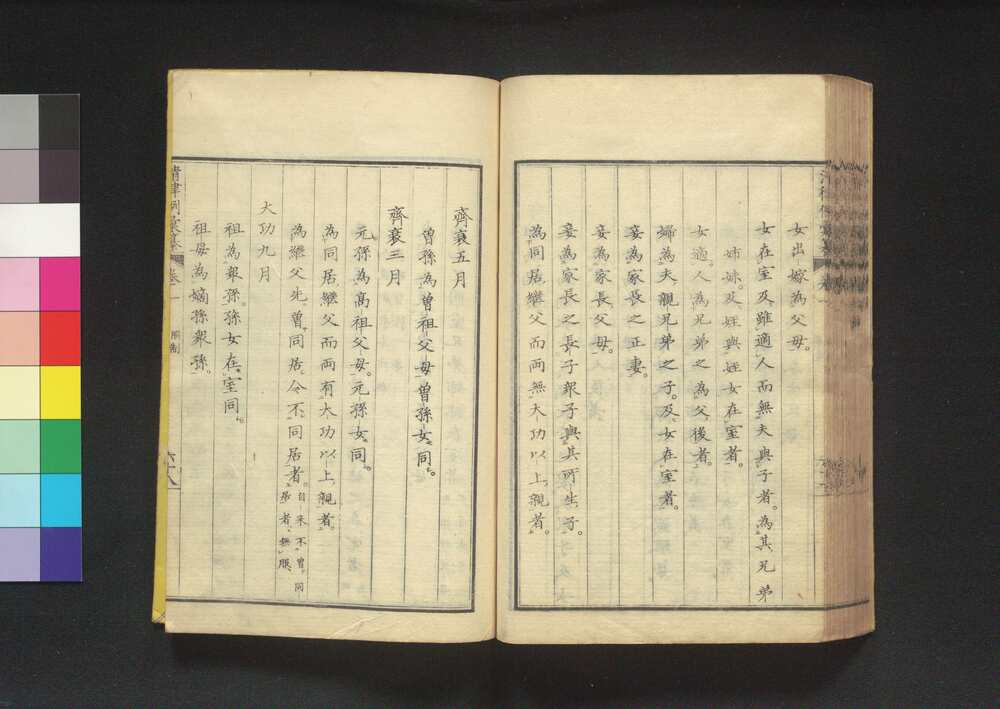 女出嫁為父母。
女在室及雖適人而無夫與子者。為其兄弟
姉妹。及姪與姪女在室者。
女適人為兄弟之為父後者。
婦為夫親兄弟之子。及女在室者。
妾為家長之正妻。
妾為家長父母。
妾為家長之長子衆子與其所生子。
為同居繼父而両無大功以上親者。
齊衰五月
曾孫為曾祖父母曾孫女同。
齊衰三月
元孫為高祖父母。元孫女同。
為同居繼父而両有大功以上親者。
為繼父先曾同居。今不同居者。自来不曾同居者。無服
大功九月
祖為衆孫。孫女在室同。
祖母為嫡孫衆孫。
清律例彙纂 卷一 服制 六十八